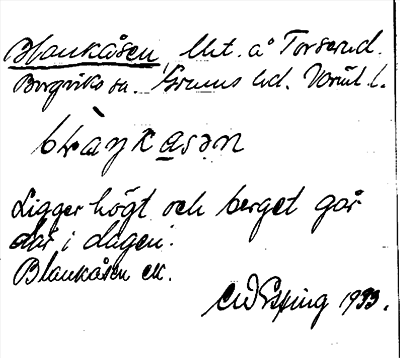 Blankåsen, lht. å Torserud.
Borgviks sn. Grums hd. Värml. l.
blaŋkasən
Ligger högt och berget går
där i dagen.
Blankåsen ek.
1933.